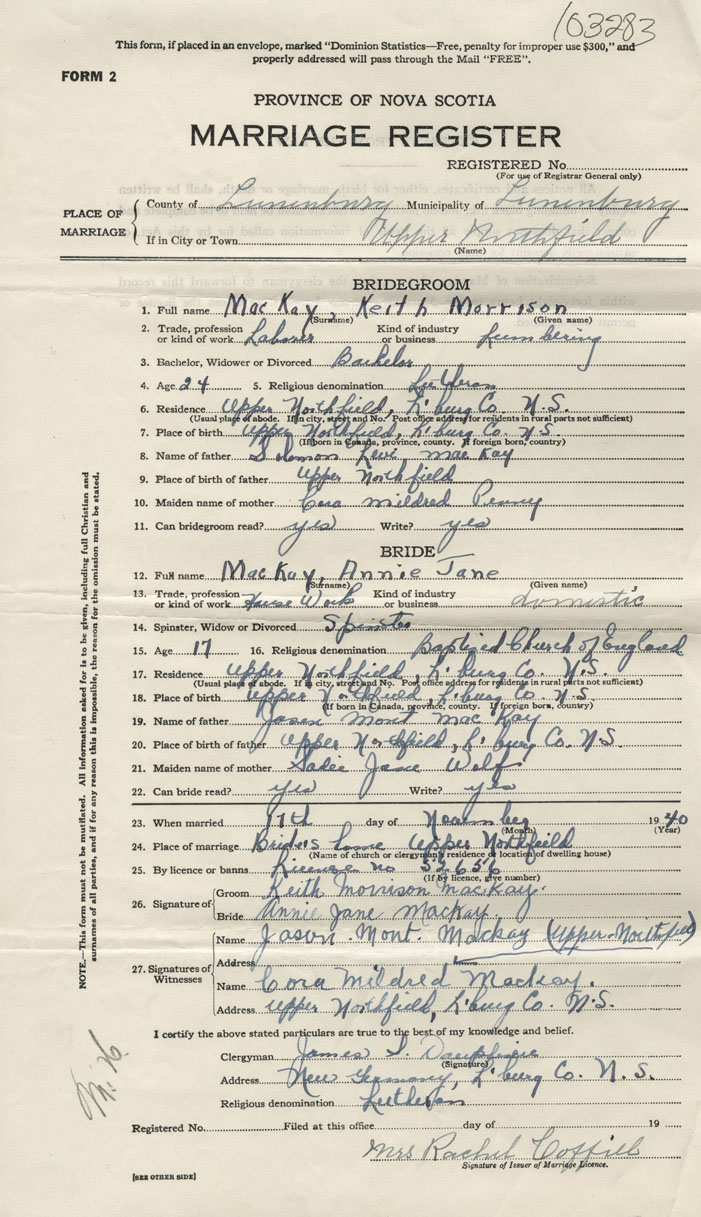 103283
This form, if placed in an envelope, marked "Dominion Statistics—Free, penalty for improper use $300," and
properly addressed will pass through the Mail "FREE".
FORM 2
PROVINCE OF NOVA SCOTIA
MARRIAGE REGISTER
REGISTERED No.
(For use of Registrar General only)
PLACE OF MARRIAGE
County of Lunenburg Municipality of Lunenburg
If in City or Town Upper Northfield
(Name)
BRIDEGROOM
1. Full name MacKay, Keith Morrison
(Surname) (Given name)
2. Trade, profession or kind of work Laborer Kind of industry or business Lumbering
3. Bachelor, Widower or Divorced Bachelor
4. Age 24 5. Religious denomination Lutheran
6. Residence Upper Northfield, L'burg Co. N.S.
(Usual place of abode. If in city, street and No. Post office address for residents in rural parts not sufficient)
7. Place of birth Upper Northfield, L'burg Co. N.S.
(If born in Canada, province, county. If foreign born, country)
8. Name of father Solomon Levi MacKay
9. Place of birth of father Upper Northfield
10. Maiden name of mother Cora Mildred Penny
11. Can bridegroom read? yes Write? yes
BRIDE
12. Full name MacKay, Annie Jane
(Surname) (Given name)
13. Trade, profession or kind of work House Work Kind of industry or business domestic
14. Spinster, Widow or Divorced Spinster
15. Age 17 16. Religious denomination Baptized Church of England
17. Residence Upper Northfield, L'burg Co. N.S.
(Usual place of abode. If in city, street and No. Post office address for residents in rural parts not sufficient)
18. Place of birth Upper Northfield, L'burg Co. N.S.
(If born in Canada, province, county. If foreign born, country)
19. Name of father Jason Mont MacKay
20. Place of birth of father Upper Northfield, L'burg Co. N.S.
21. Maiden name of mother Sadie Jane Wolf
22. Can bride read? yes Write? yes
23. When married 17th day of November 1940
(Month) (Year)
24. Place of marriage Brides home Upper Northfield
(Name of church or clergyman's residence or location of dwelling house)
25. By licence or banns License no 52656
(If by licence, give number)
26. Signature of
Groom Keith Morrison MacKay.
Bride Annie Jane MacKay
27. Signatures of Witnesses
Name Jason. Mont. Mackay (Upper-Northfield)
Address
Name Cora Mildred Mackay.
Address Upper Northfield, L'burg Co. N.S.
I certify the above stated particulars are true to the best of my knowledge and belief.
Clergyman James I. Dauphinee
(Signature)
Address New Germany, L'burg Co. N.S.
Religious denomination Lutheran
Registered No. Filed at this office day of 19
Mrs Rachel Coffill
Signature of Issuer of Marriage Licence.
[SEE OTHER SIDE]
NOTE.—This form must not be mutilated. All information asked for is to be given, including full Christian and
surnames of all parties, and if for any reason this is impossible, the reason for the omission must be stated.